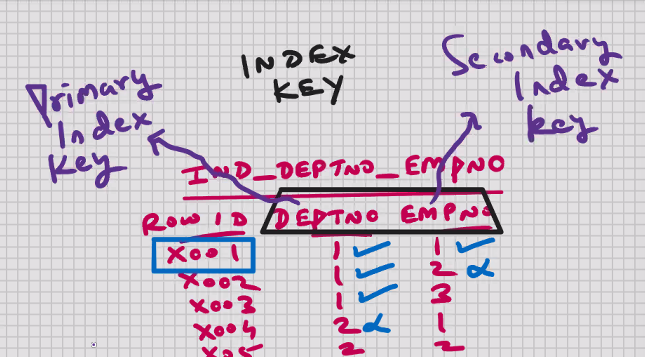 INDEX
KEY
Primary
Index
Key
Secondary
Index
key
IND_DEPTNO_EMPNO
ROW ID DEPTNO EMPNO
X001 1 1
X002 1 2
X003 1 3
X004 2 1
X005 2 2